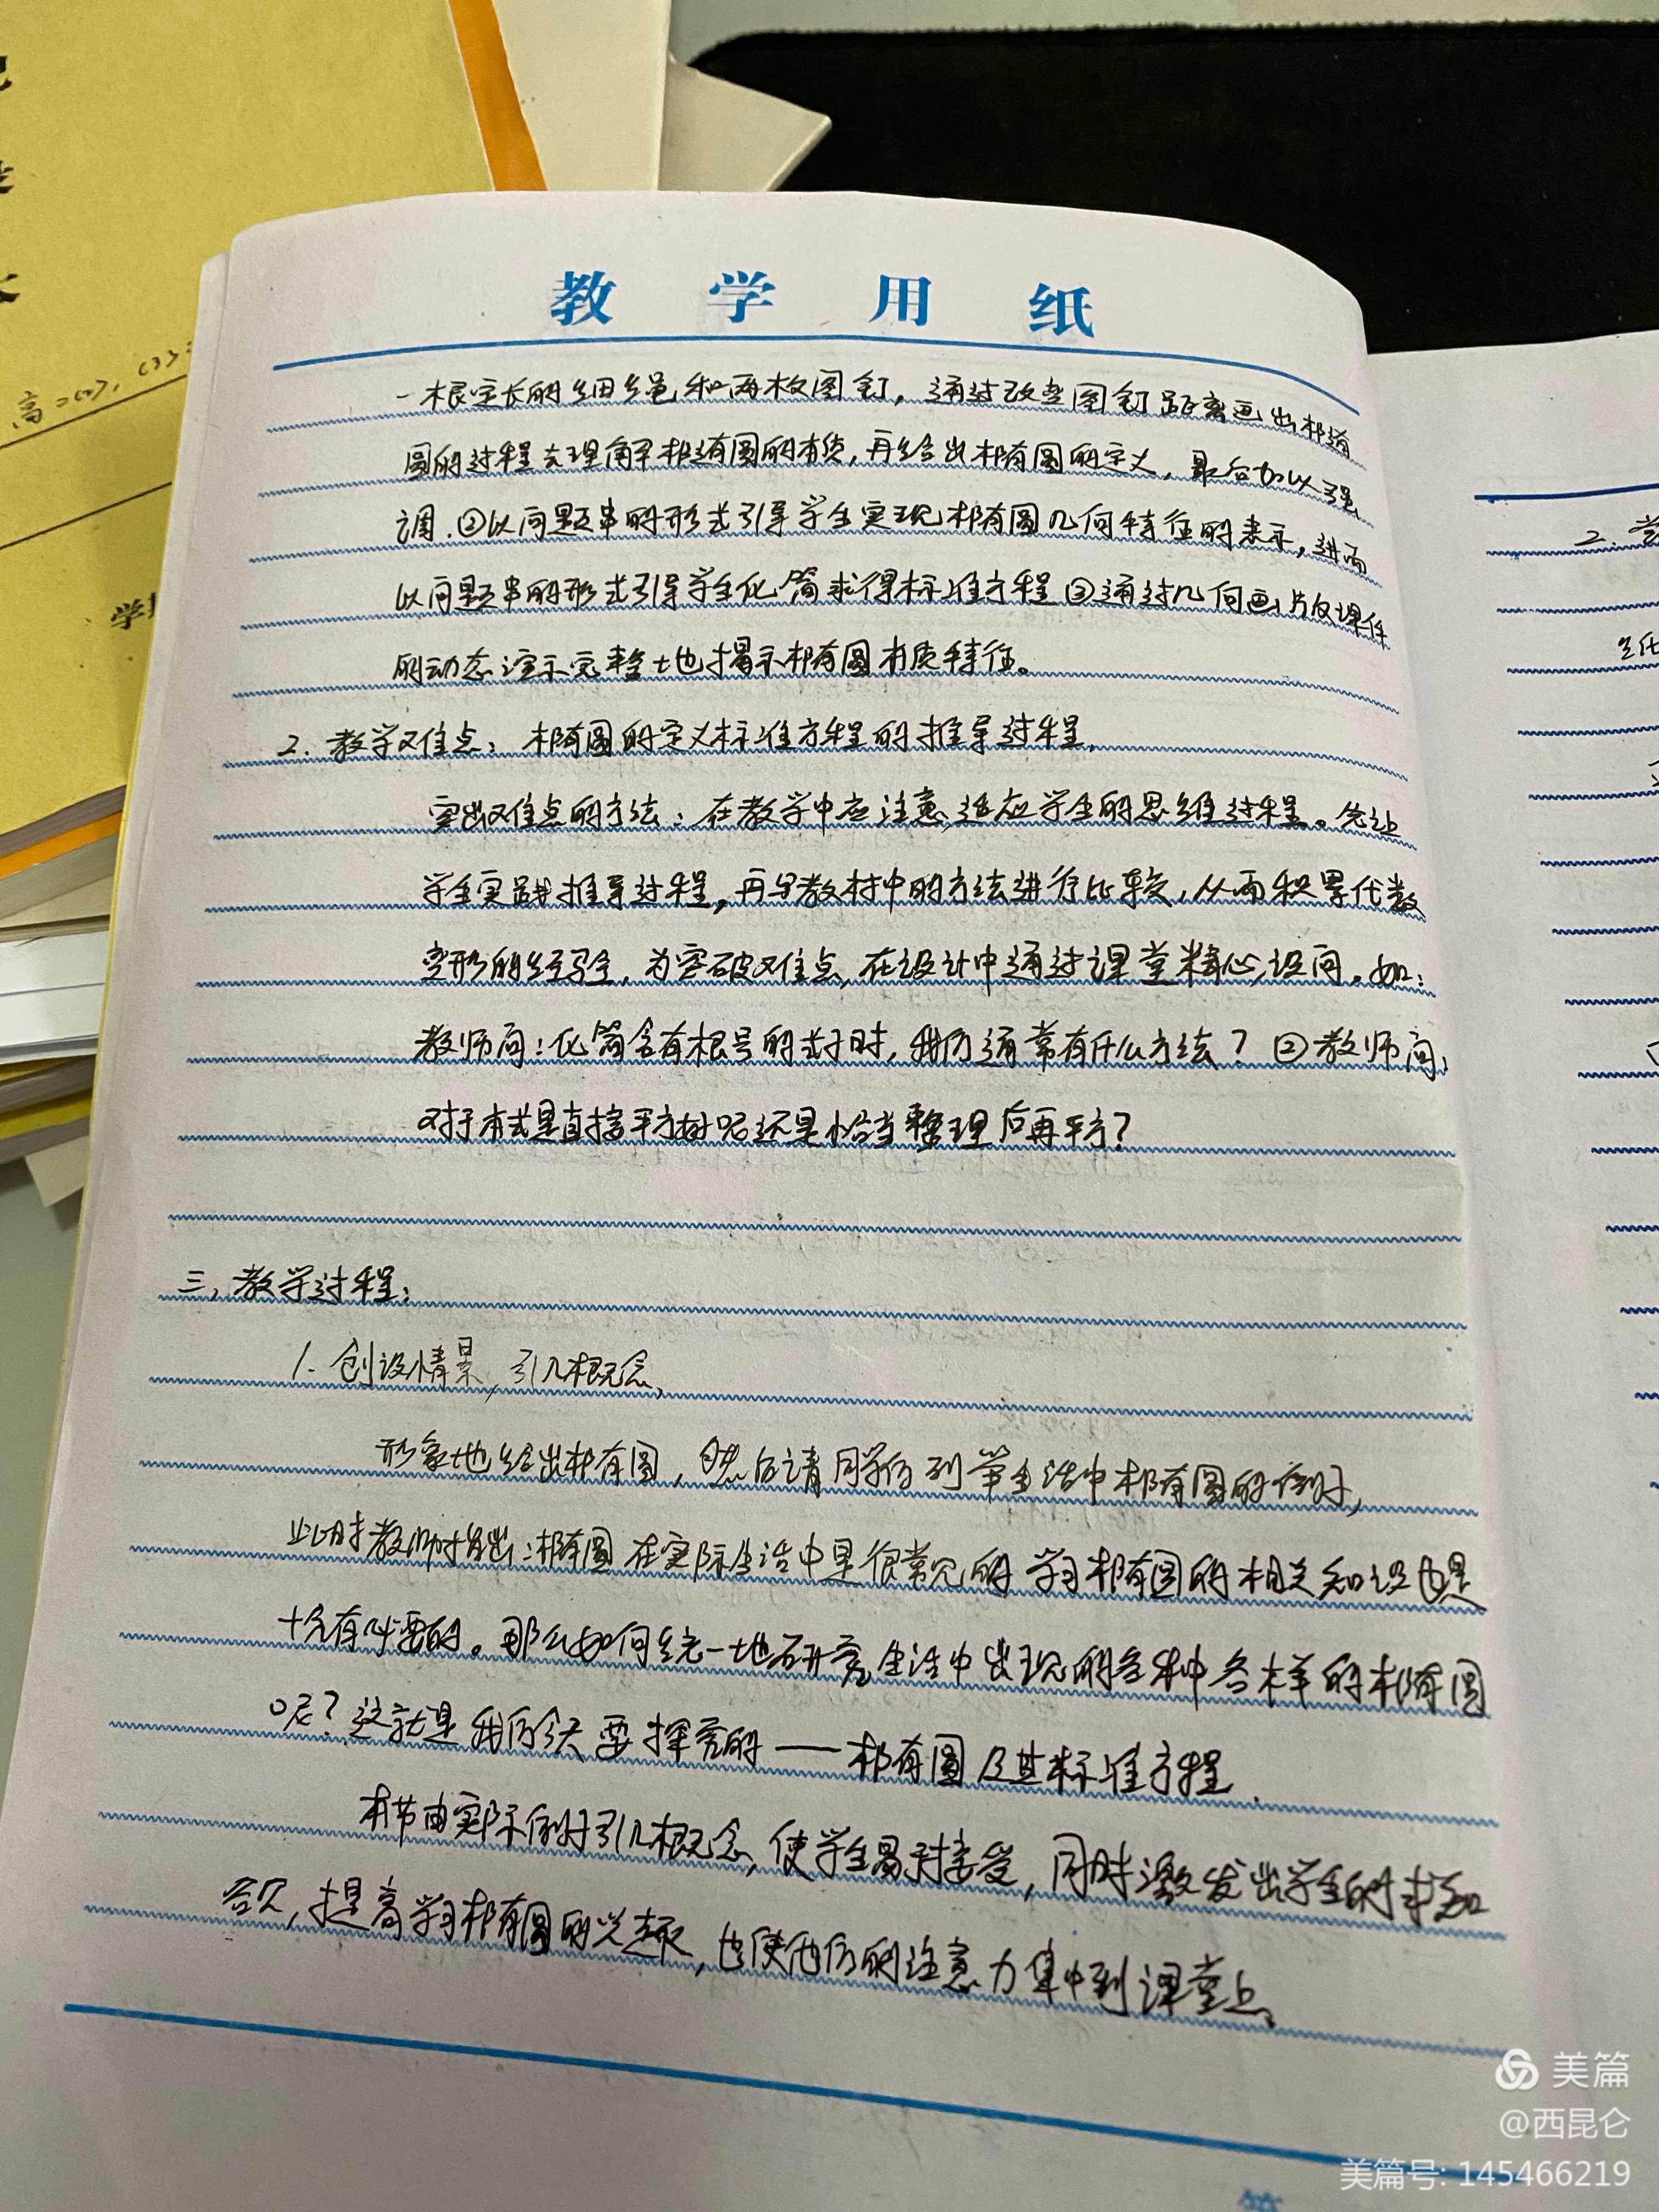 教学用纸
一根定长的细绳和两枚图钉，通过改变图钉距离画出椭
圆的过程去理解椭圆的本质，再给出椭圆的定义，最后加以强
调.②以问题串的形式引导学生实现椭圆几何特征的表示，进而
以问题串的形式引导学生化简求得标准方程③通过几何画片及课件
的动态演示完整地揭示椭圆本质特征。
2. 教学难点：椭圆的定义标准方程的推导过程.
突出难点的方法：在教学中应注意适应学生的思维过程。先让
学生实践推导过程，再与教材中的方法进行比较，从而积累代数
变形的经验，为突破难点，在设计中通过课堂精心设问。如：
教师问：化简含有根号的式子时，我们通常有什么方法？②教师问，
对于本式是直接平方好呢还是恰当整理后再平方？
三，教学过程：
1. 创设情景，引入概念，
形象地给出椭圆，然后请同学们列举生活中椭圆的例子，
此时教师指出：椭圆在实际生活中是很常见的 学习椭圆的相关知识也是
十分有必要的。那么如何统一地研究生活中出现的各种各样的椭圆
呢？这就是我们今天要探究的——椭圆及其标准方程.
本节由实际例子引入概念，使学生易于接受，同时激发出学生的求知
欲，提高学习椭圆的兴趣，也使他们的注意力集中到课堂上.
高=(2), (3):
学
2.
美篇
@西昆仑
美篇号: 145466219